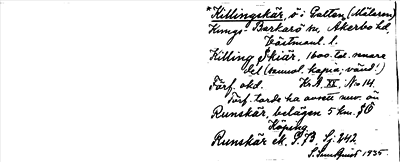 *Killingskär, ö i Galten (Mälaren)
Kungs-Barkarö sn, Åkerbo hd,
Västmanl. l.
Killing Skiär, 1600-tal. senare
del (numel. kopia, vänd!)
Förf. okd. K.A. XX, No 14.
Förf. torde ha avsett nuv. ön
Runskär, belägen 5 km. SÖ
Köping.
Runskär ek. S. 73. Sj. 242.
S. Lundquist 1935.